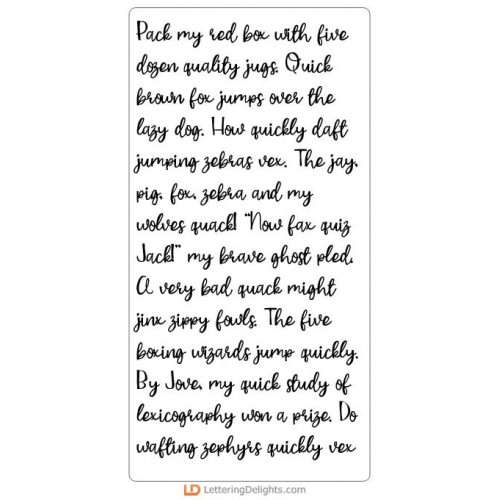 Pack my red box with five
dozen quality jugs. Quick
brown fox jumps over the
lazy dog. How quickly daft
jumping zebras vex. The jay,
pig, fox, zebra and my
wolves quack! "Now fax quiz
Jack!" my brave ghost pled.
A very bad quack might
jinx zippy fowls. The five
boxing wizards jump quickly.
By Jove, my quick study of
lexicography won a prize. Do
wafting zephyrs quickly vex
LD LetteringDelights.com